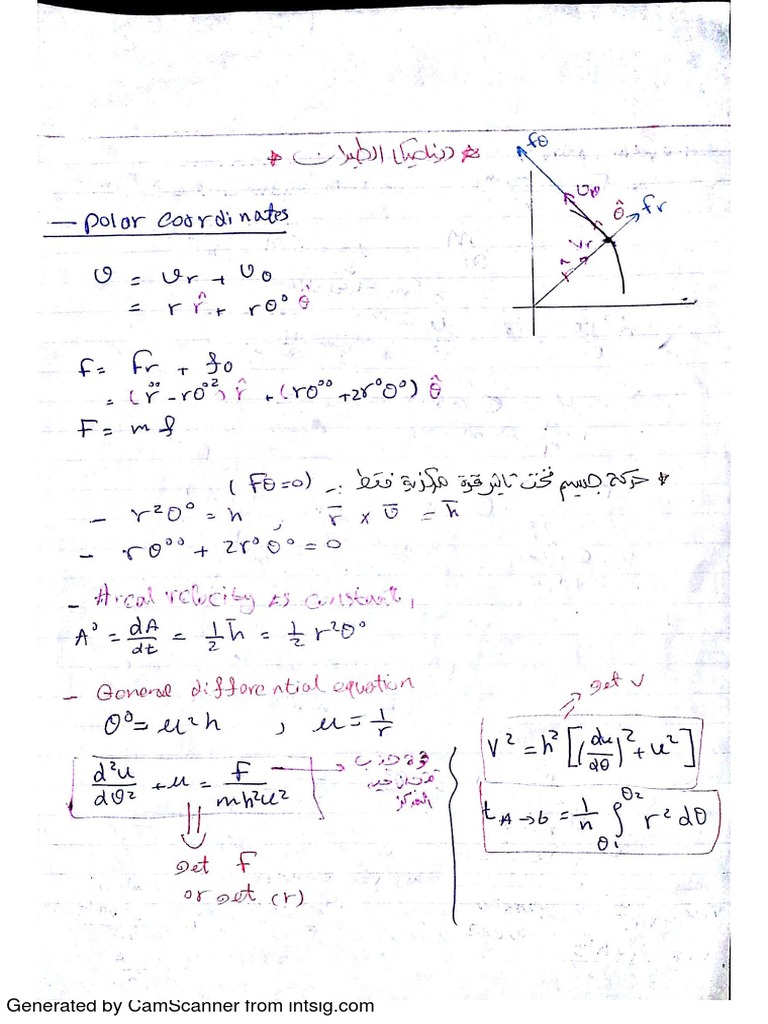 * ديناميكا الطيران *
fθ
vθ
θ̂
fr
vr
r̂
— polar coordinates
v = vr + vθ
= r r̂ + rθ° θ̂
f = fr + fθ
= (r°° - rθ°²) r̂ + (rθ°° + 2r°θ°) θ̂
F = m f
* حركة جسيم تحت تاثير قوة مركزية فقط :- (Fθ=0)
- r²θ° = h , r̄ x v̄ = h̄
- rθ°° + 2r°θ° = 0
- Areal velocity is constant,
A° = dA/dt = 1/2 h̄ = 1/2 r²θ°
- General differential equation
θ° = u²h , u = 1/r
d²u/dθ² + u = F/mh²u²
قوة جذب
المركز
get F
or get (r)
get v
V² = h² [(du/dθ)² + u²]
t A→b = 1/h ∫θ1θ2 r² dθ
Generated by CamScanner from intsig.com